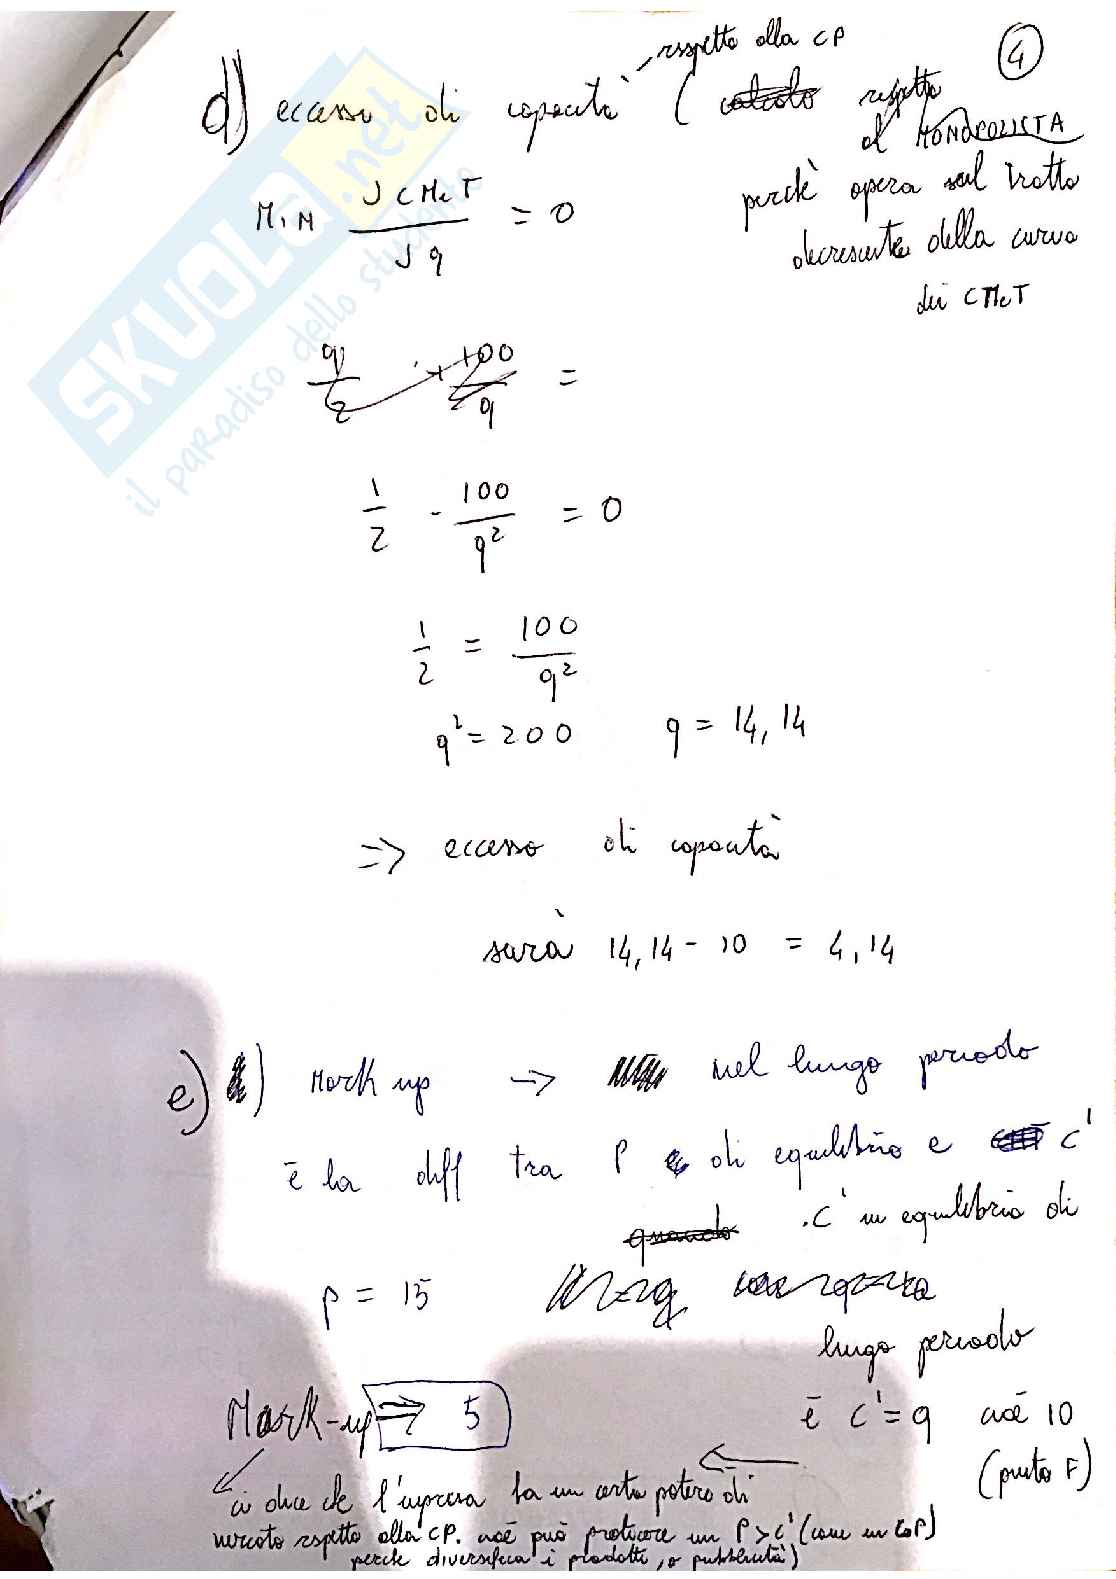 rispetto alla CP
4
d) eccesso di capacità ( calcolo rispetto
al MONOPOLISTA
perchè opera sul tratto
decrescente della curva
dei CMeT
MIN J CMeT / J q = 0
q/2 + 100/q =
1/2 - 100/q² = 0
1/2 = 100/q²
q² = 200 q = 14,14
=> eccesso di capacità
sarà 14,14 - 10 = 4,14
e) ) Mark up -> nel lungo periodo
è la diff tra P di equilibrio e C'
quando . C' in equilibrio di
P = 15
lungo periodo
Mark-up => 5
è C' = q cioè 10
(punto F)
ci dice che l'impresa ha un certo potere di
mercato rispetto alla CP. cioè può praticare un P > C' (come in CoP)
perchè diversifica i prodotti, o pubblicità)
SKUOLA.net
il paradiso dello studente